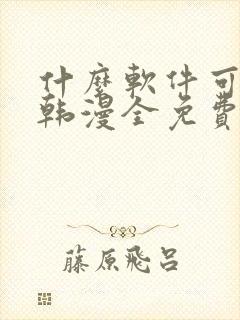 什麼軟件可
韩漫全免費
藤原飛呂